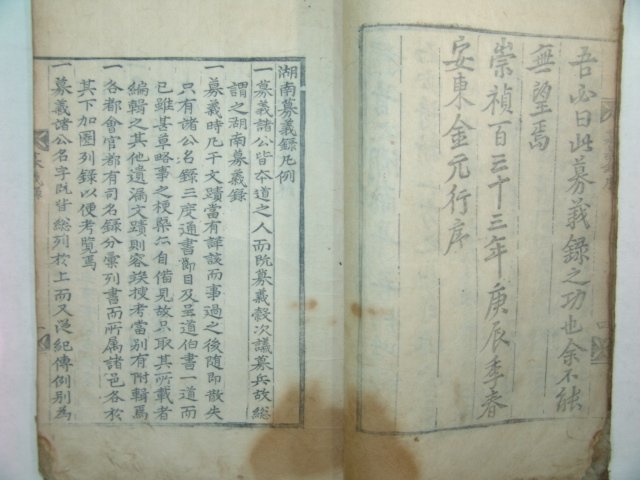 吾必曰此募義錄之功也余不能
無望焉
崇禎百三十三年庚辰季春
安東金元行序
湖南募義錄凡例
一募義諸公皆本道之人而旣募義穀次議募兵故總
謂之湖南募義錄
一募義時凡干文蹟當有詳該而事過之後隨即散失
只有諸公名錄三度通書節目及呈道伯書一道而
已雖甚草略事之梗槩亦自備見故只取其所載者
編輯之其他遺漏文蹟則容竢搜考當別有附輯焉
一各都會官都有司名錄分彙列書而所属諸邑各於
其下加圈列錄以便考覽焉
一募義諸公名字旣皆總列於上而又邊紀傳例別爲